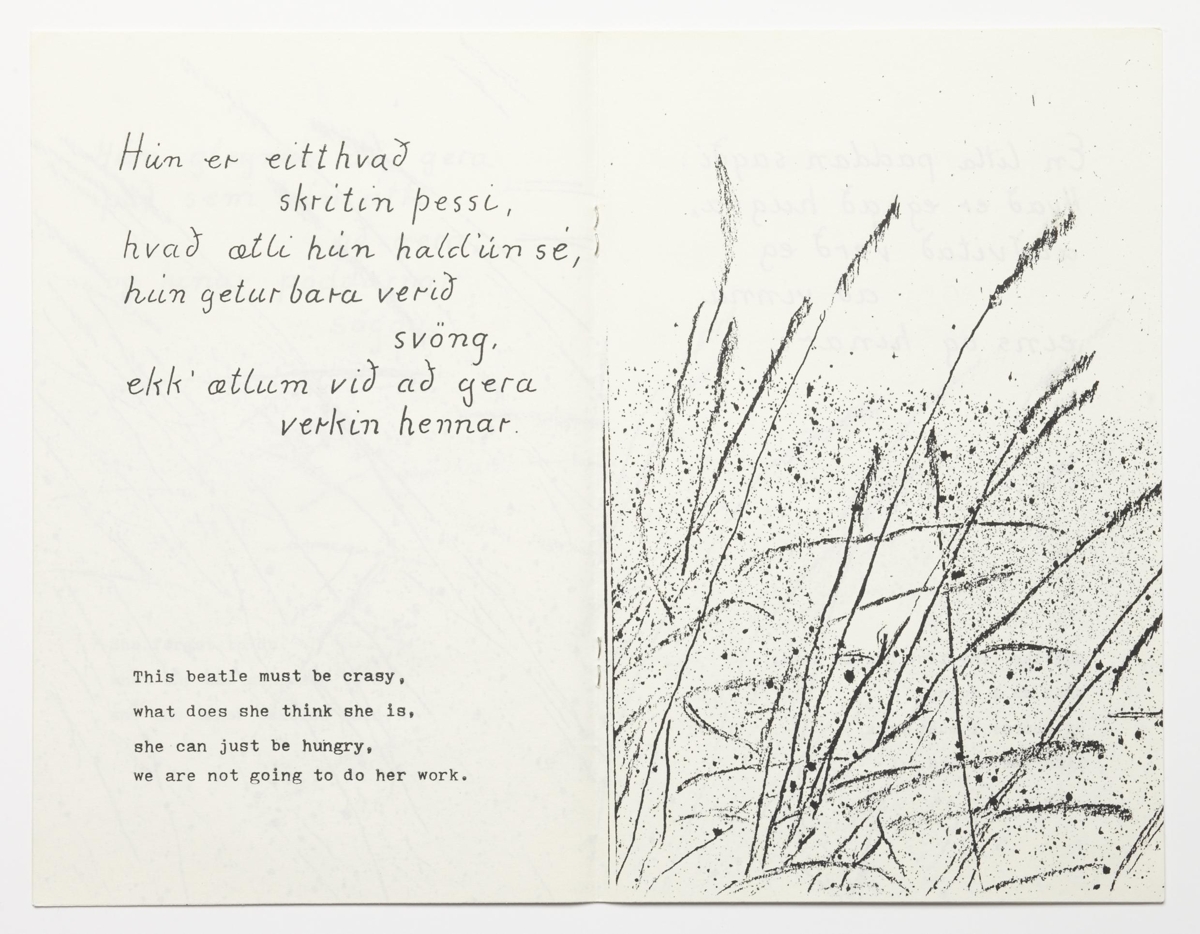 Hún er eitthvað
skritin þessi,
hvað ætli hún hald'ún sé,
hún getur bara verið
svöng,
ekk' ætlum við að gera
verkin hennar.
This beatle must be crasy,
what does she think she is,
she can just be hungry,
we are not going to do her work.